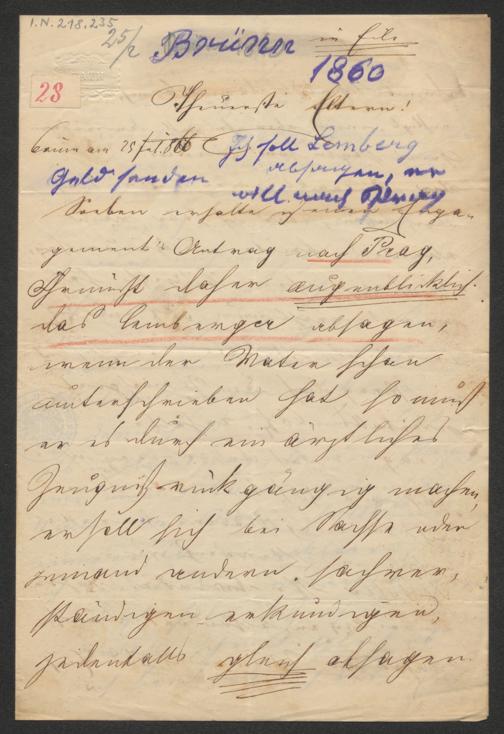 I.N. 218.235
25/2 Brünn in Eile
1860
23
Theuerste Eltern!
Brünn am 25 1860 Ich soll Lemberg
absagen, er
Geld senden will nach Prag
Soeben erhalte ich einen Enga-
gement's Antrag nach Prag,
Ihr müßt daher augenblicklich
das Lemberger absagen,
wenn der Vater schon
unterschrieben hat so muß
er es durch ein ärztliches
Zeugniß rückgängig machen,
er soll sich bei Sachse oder
jemand andern sachver-
ständigen erkundigen,
jedenfalls gleich absagen.